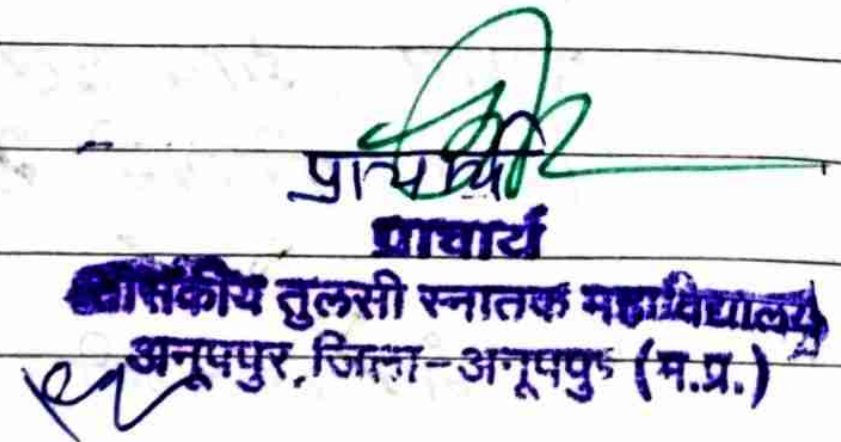 प्राचार्य
प्राचार्य
शासकीय तुलसी स्नातक महाविद्यालय
अनूपपुर, जिला-अनूपपुर (म.प्र.)